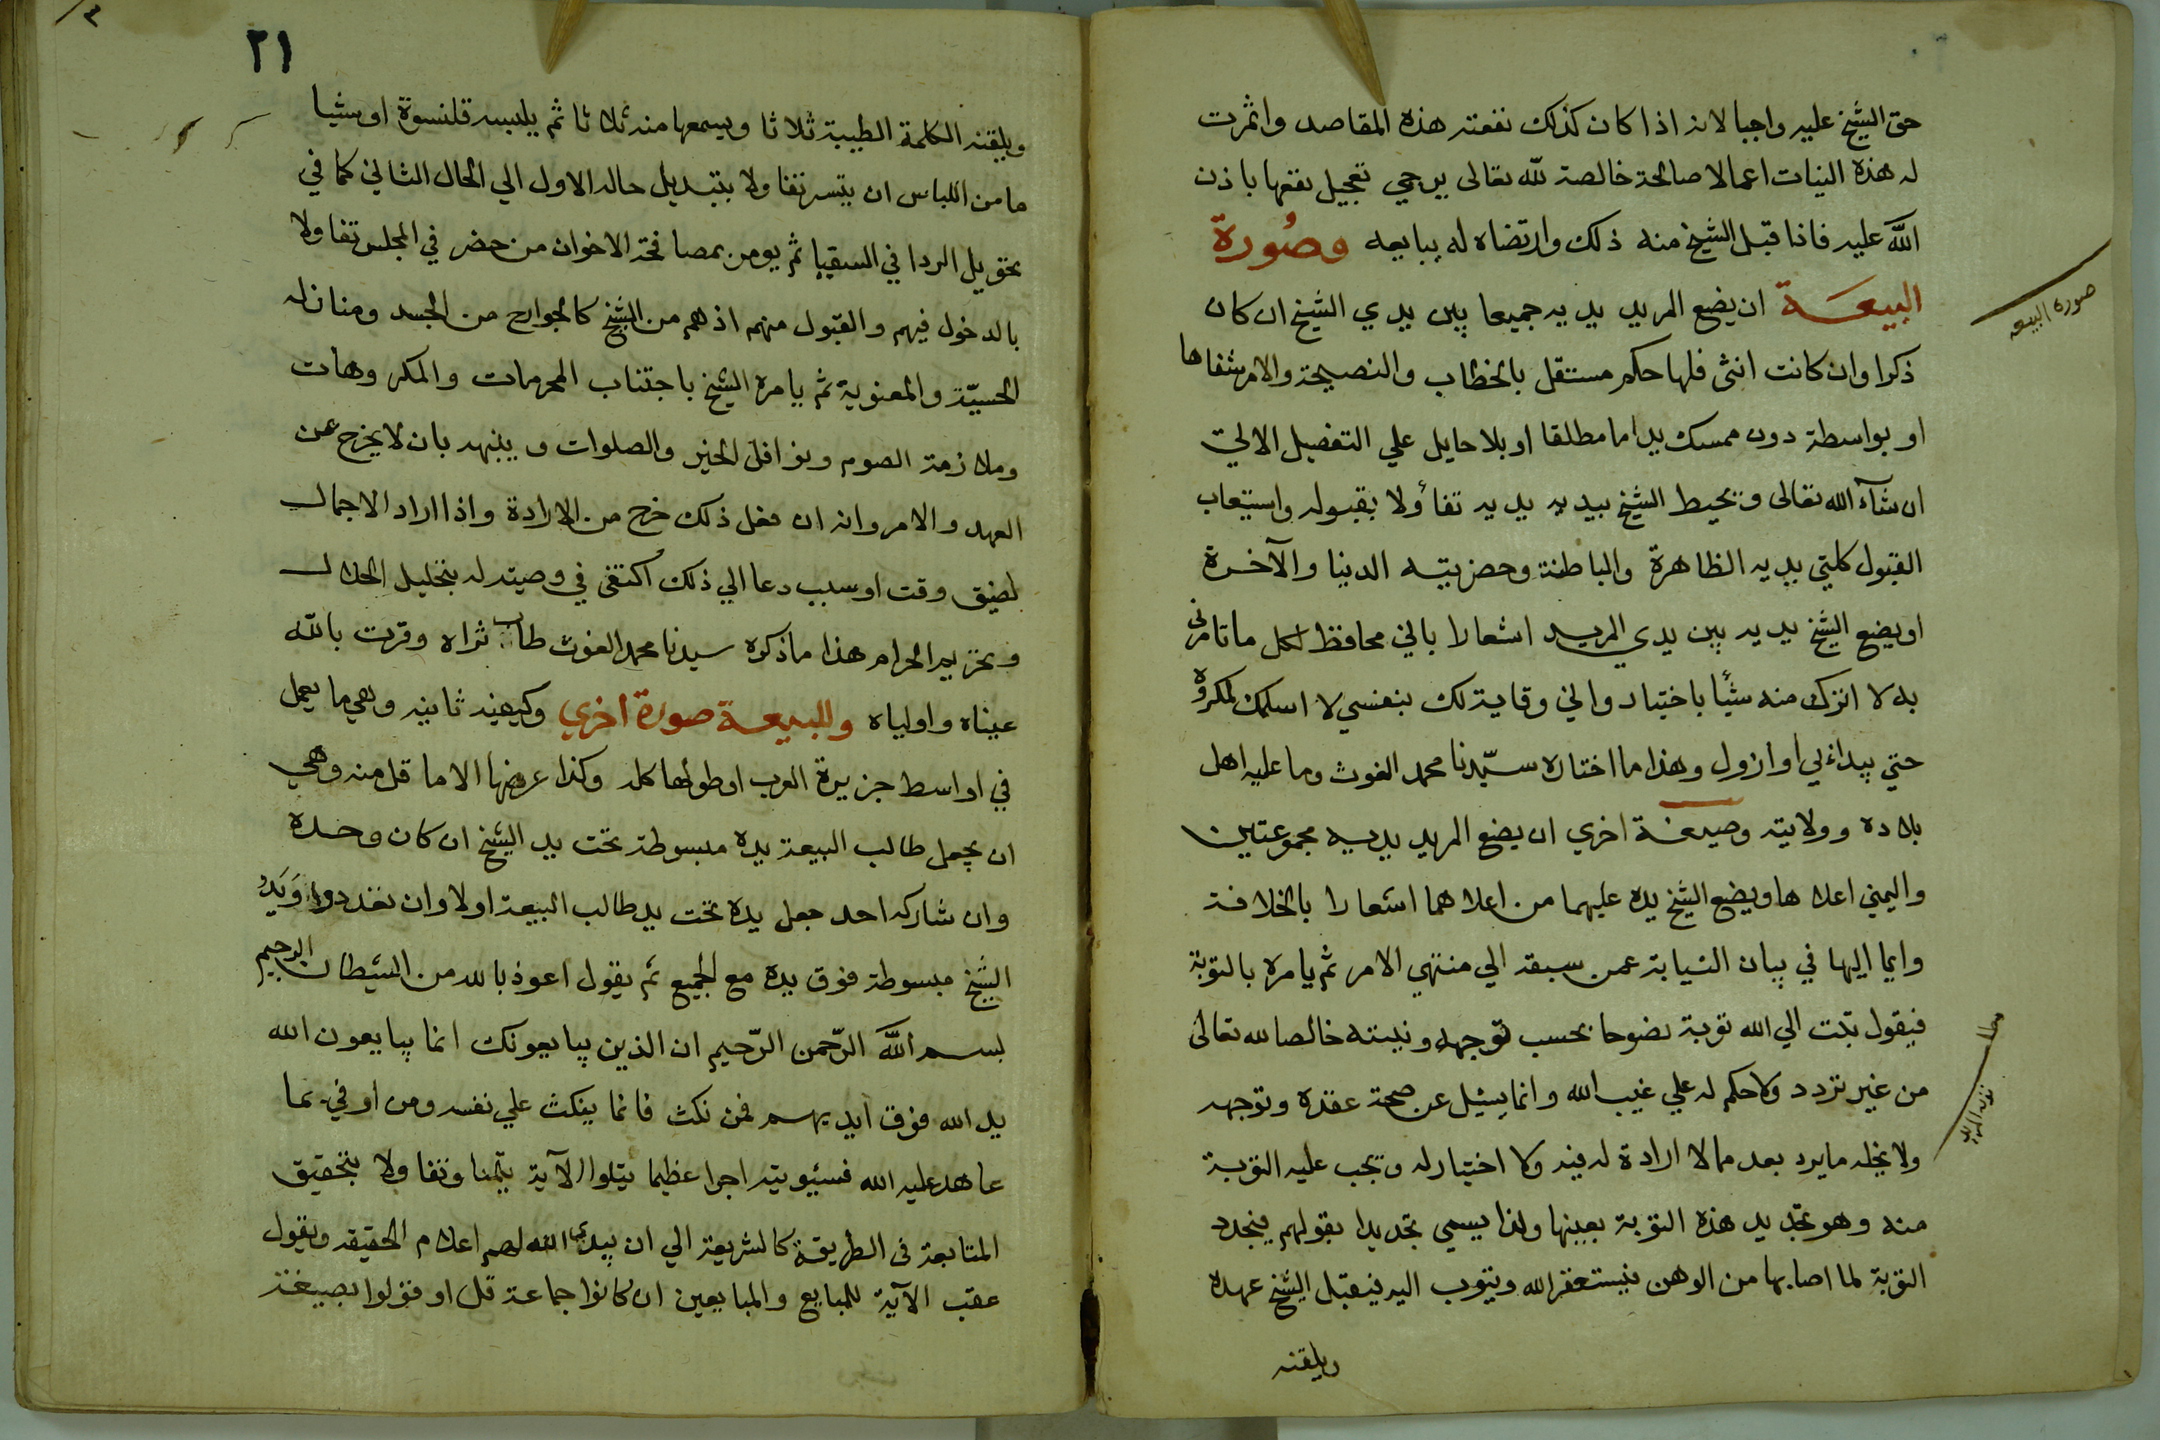 حق الشيخ عليه واجبا لانه اذا كان كذلك نفعته هذه المقاصد واثمرت
له هذه النيات اعمالا صالحة خالصة لله تعالى يرجي تعجيل نفعها باذن
الله عليه فاذا قبل الشيخ منه ذلك وارتضاه له يبايعه وصُورة
البيعـــة ان يضع المريد يديه جميعا بين يدي الشيخ ان كان
ذكرا وان كانت انثى فلها حكم مستقل بالخطاب والنصيحة والامر شفاها
او بواسطة دون ممسك يد اما مطلقا او بلا حايل علي التفصيل الاتي
ان شآء الله تعالى ويحيط الشيخ بيديه يديه تفاؤلا بقبوله واستيعاب
القبول كليتي يديه الظاهرة والباطنة وحضرتيه الدنيا والآخرة
او يضع الشيخ يديه بين يدي المريد اشعارا باني محافظ لكل ما تامرني
به لا اترك منه شيًا باختيار واني وقاية لك بنفسي لا اسلمك لمكروه
حتي يبداء بي او ازول وهذا ما اختاره سيّدنا محمد الغوث وما عليه اهل
بلاده وولايته وصيغة اخري ان يضع المريد يديه مجموعتين
واليمني اعلاها ويضع الشيخ يده عليهما من اعلاهما اشعارا بالخلافة
وايما اليها في بيان النيابة عمن سبقه الي منتهي الامر ثم يامره بالتوبة
فيقول تبت الي الله توبة نصوحا بحسب توجهه ونيته خالصا لله تعالى
من غير تردد ولا حكم له علي غيب الله وانما يسئل عن صحة عقده وتوجهه
ولا يخله ما يرد بعد مما لا ارادة له فيه ولا اختيار له وتجب عليه التوبة
منه وهو تجديد هذه التوبة بعينها ولذا يسمي تجديدا بقولهم يتجدد
التوبة لما اصابها من الوهن فيستغفر الله ويتوب اليه فيقبل الشيخ عهده
ويلقنه
صورة البيعه
٢١
٣
ويلقنه الكلمة الطيبة ثلاثا ويسمعها منه ثلاثا ثم يلبسه قلنسوة او شيا
ما من اللباس ان يتسر تفاولا بتبديل حاله الاول الي الحال الثاني كما في
تحويل الردا في السقيا ثم يومر بمصافحة الاخوان من حضر في المجلس تفاولا
بالدخول فيهم والقبول منهم اذ هم من الشيخ كالجوارح من الجسد ومنازله
الحسيّة والمعنوية ثم يامره الشيخ باجتناب المحرمات والمكروهات
وملازمة الصوم ونوافل الخير والصلوات وينبهه بان لا يخرج عن
العهد والامر وانه ان فعل ذلك خرج من الارادة واذا اراد الاجمال
لضيق وقت او سبب دعا الي ذلك اكتفي في وصيته له بتحليل الحلال
وتحريم الحرام هذا ما ذكره سيدنا محمد الغوث طاب ثراه وقرت بالله
عيناه واولياه وللبيعة صورة اخري وكيفية ثانية وهي ما يعمل
في اواسط جزيرة العرب او طولها كله وكذا عرضها الا ما قل منه وهي
ان يجعل طالب البيعة يده مبسوطة تحت يد الشيخ ان كان وحده
وان شاركه احد جعل يده تحت يد طالب البيعة اولا وان تعددوا وَيَدُ
الشيخ مبسوطة فوق يده مع الجميع ثم يقول اعوذ بالله من الشيطان الرجيم
بسم الله الرّحمن الرّحيم ان الذين يبايعونك انما يبايعون الله
يد الله فوق ايديهم فمن نكث فانما ينكث علي نفسه ومن اوفي بما
عاهد عليه الله فسيؤتيه اجرا عظيما يتلوا الآية تيمنا وتفاولا بتحقيق
المتابعة في الطريقة كالشريعة الي ان يبدي الله لهم اعلام الحقيقه ويقول
عقب الآية للمبايع والمبايعين ان كانوا جماعة قل او قولوا بصيغة